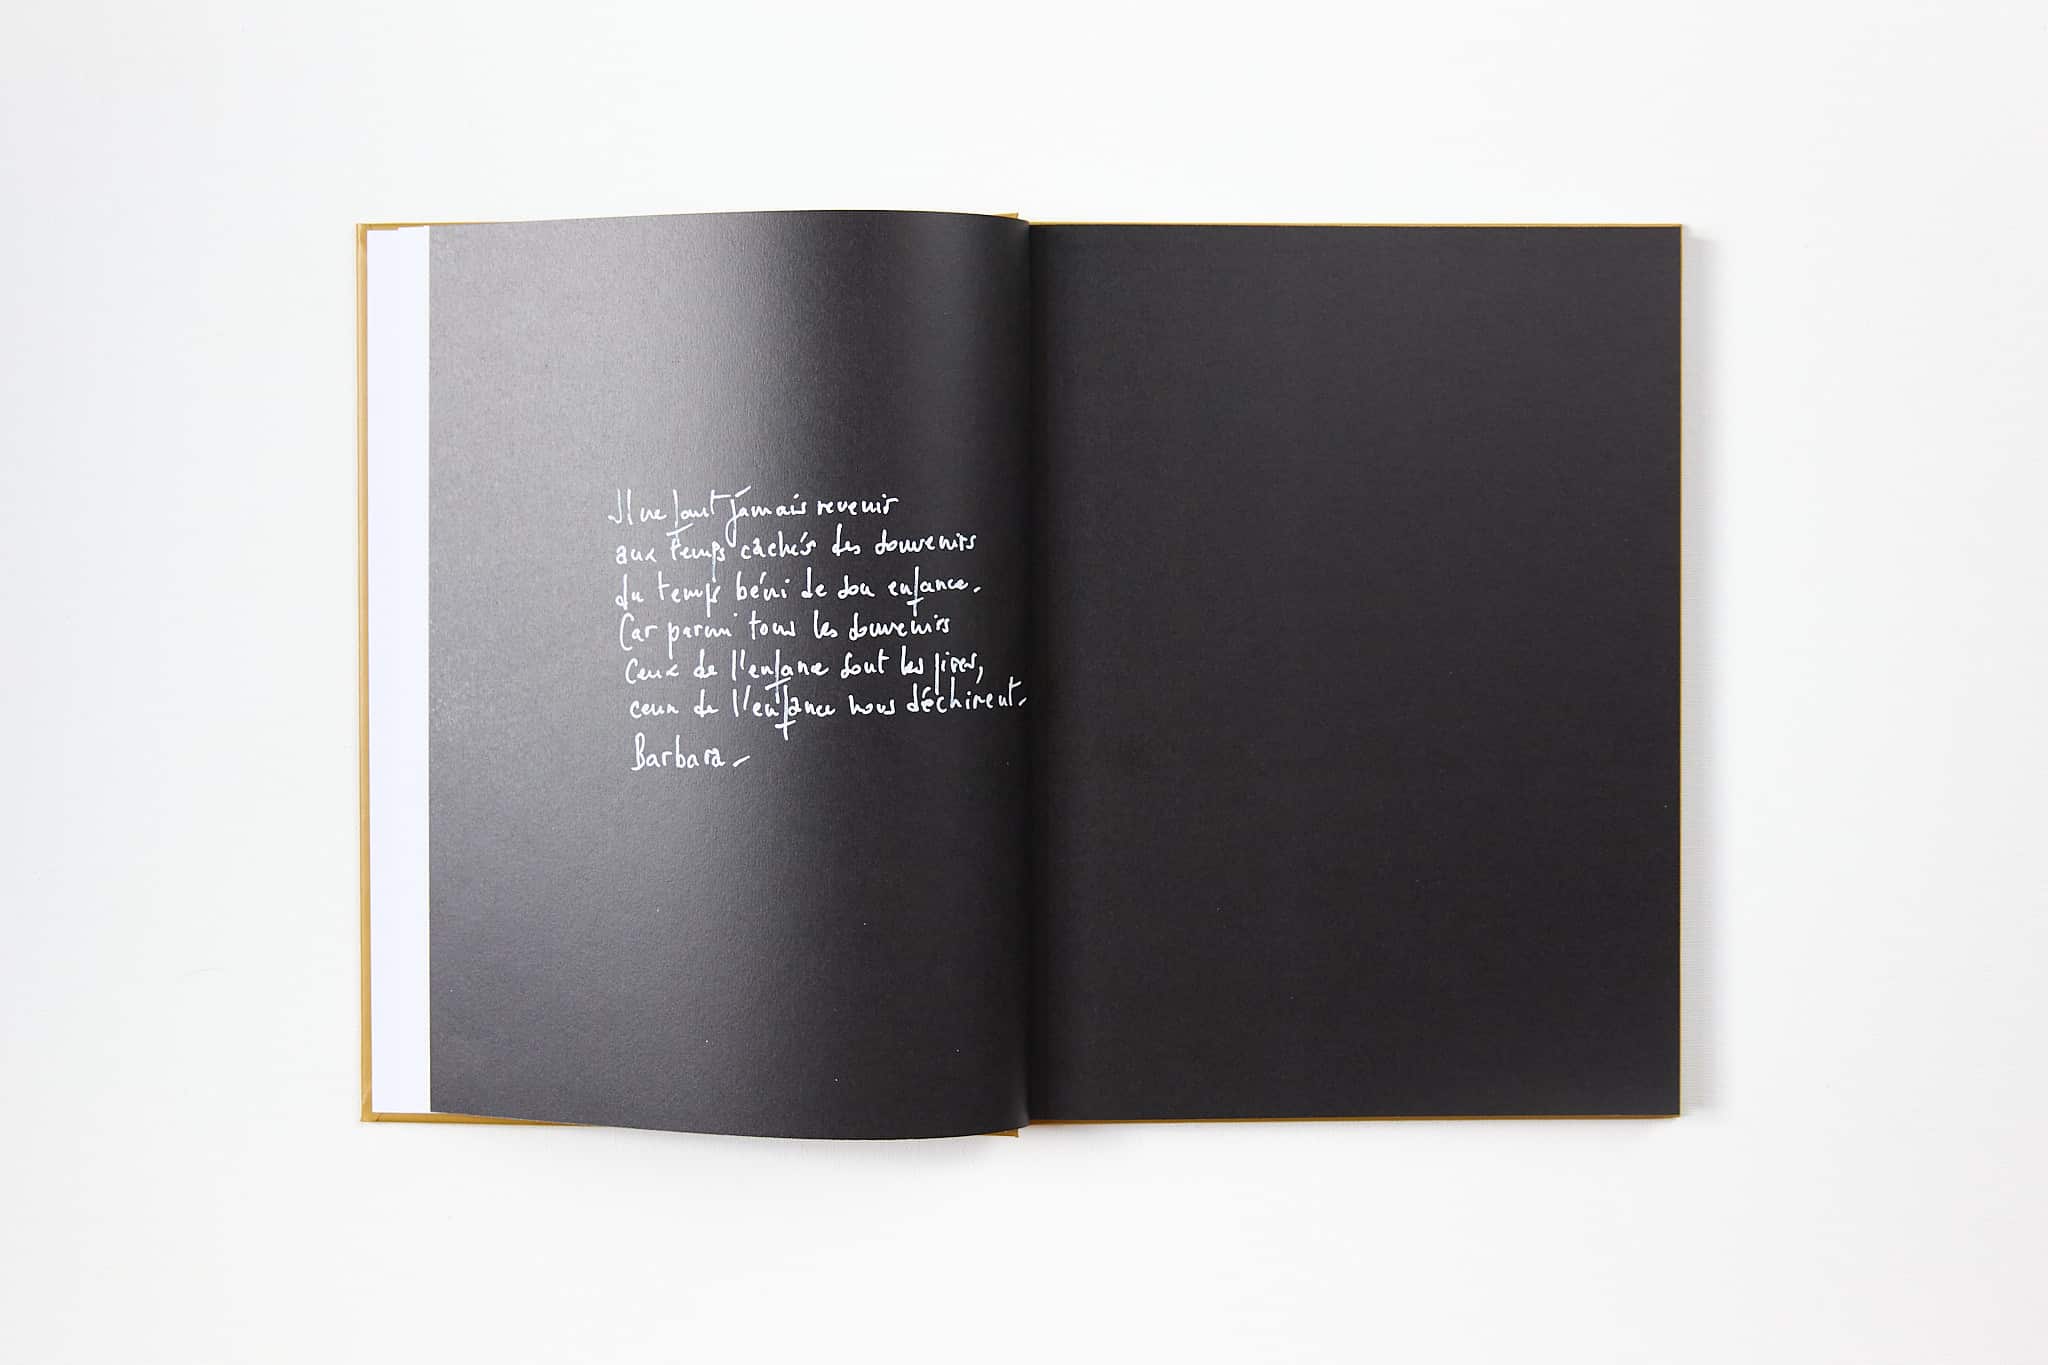 Il ne faut jamais revenir
aux temps cachés des souvenirs
du temps béni de son enfance.
Car parmi tous les souvenirs
ceux de l'enfance sont les pires,
ceux de l'enfance nous déchirent.
Barbara